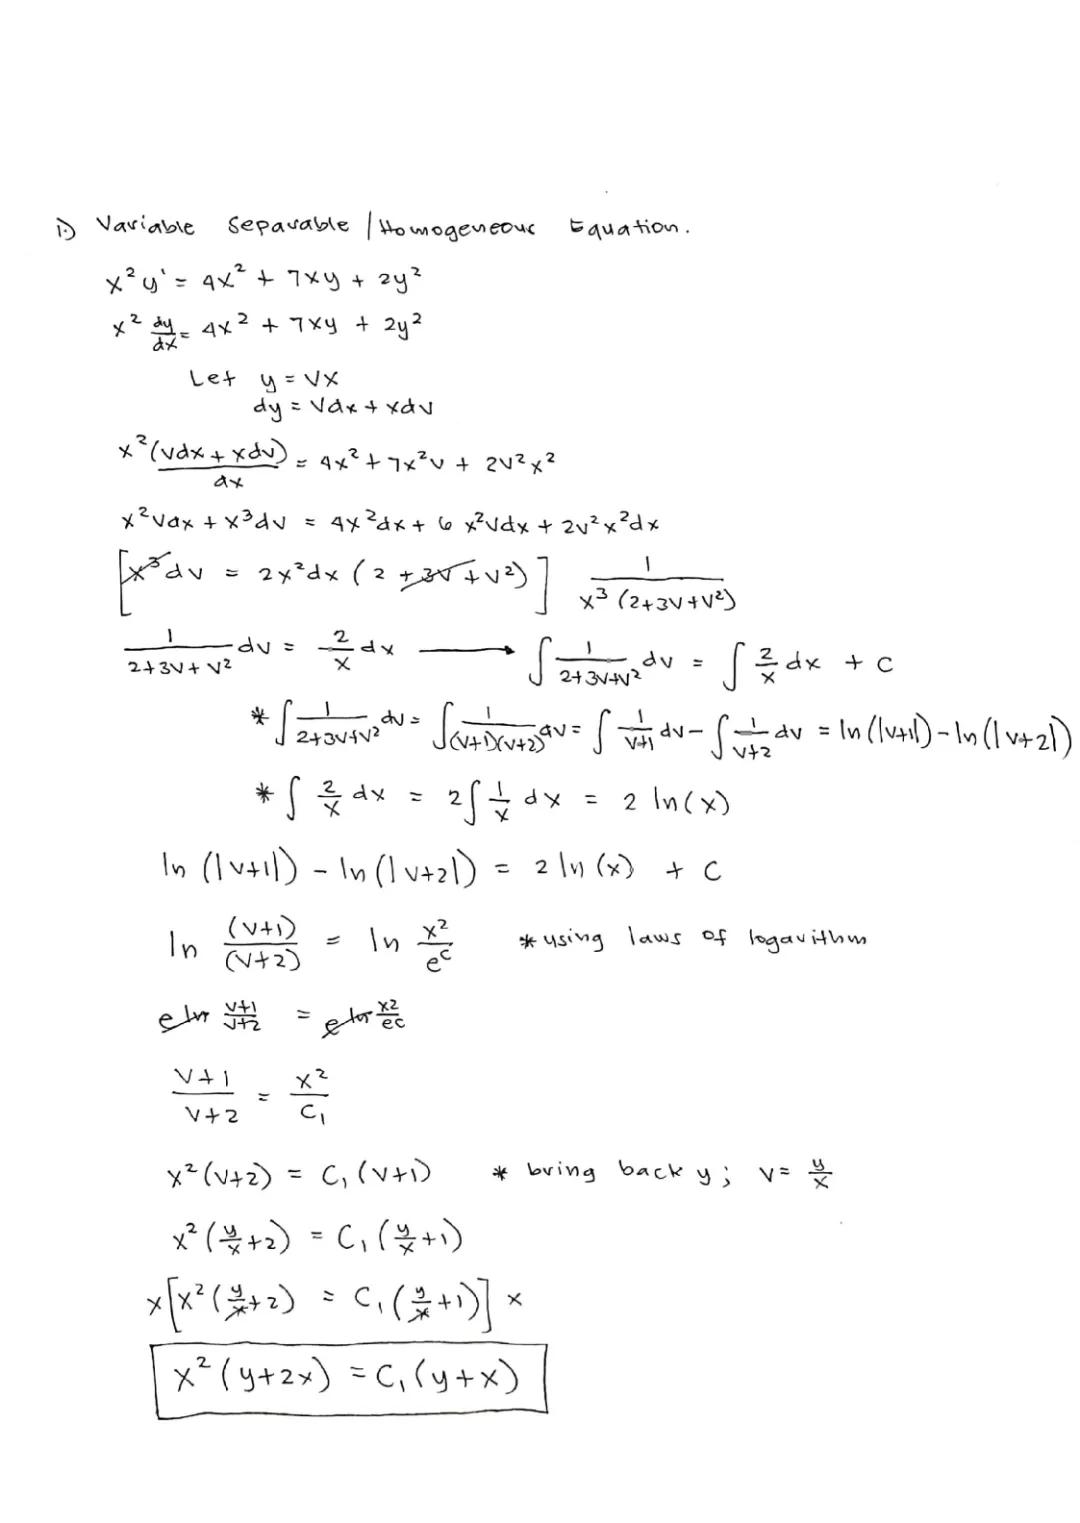 1.) Variable Separable / Homogeneous Equation.
x²y' = 4x² + 7xy + 2y²
x² dy/dx = 4x² + 7xy + 2y²
Let y = vx
dy = vdx + xdv
x²(vdx + xdv)/dx = 4x² + 7x²v + 2v²x²
x²vdx + x³dv = 4x²dx + 6x²vdx + 2v²x²dx
[x³dv = 2x²dx (2 + 3v + v²)] 1/(x³(2+3v+v²))
1/(2+3v+v²) dv = 2/x dx → ∫ 1/(2+3v+v²) dv = ∫ 2/x dx + C
* ∫ 1/(2+3v+v²) dv = ∫ 1/((v+1)(v+2)) dv = ∫ 1/(v+1) dv - ∫ 1/(v+2) dv = ln(|v+1|) - ln(|v+2|)
* ∫ 2/x dx = 2∫ 1/x dx = 2 ln(x)
ln(|v+1|) - ln(|v+2|) = 2 ln(x) + C
ln (v+1)/(v+2) = ln x²/e^c * using laws of logarithm
e^ln (v+1)/(v+2) = e^ln x²/e^c
(v+1)/(v+2) = x²/C₁
x²(v+2) = C₁(v+1) * bring back y; v = y/x
x²(y/x+2) = C₁(y/x+1)
x[x²(y/x+2) = C₁(y/x+1)]x
x²(y+2x) = C₁(y+x)